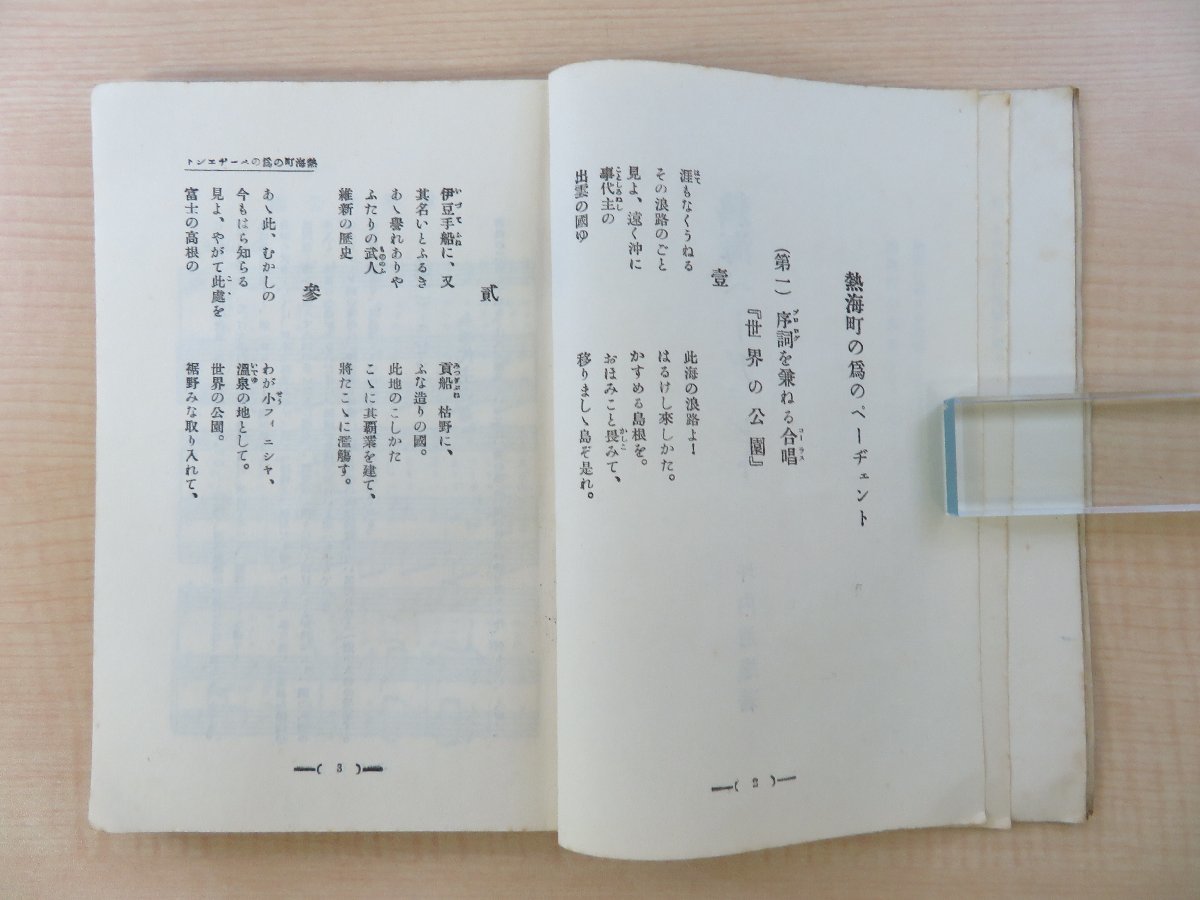 熱海町の爲のページェント
(第一) 序詞を兼ねる合唱
『世界の公園』
壹
涯もなくうねる 此海の浪路よ!
その浪路のごと はるけし來しかた。
見よ、遠く沖に かすめる島根を。
事代主の おほみこと畏みて、
出雲の國ゆ 移りましゝ島ぞ是れ。
( 2 )
熱海町の爲のページェント
貳
伊豆手船に、又 貢船 枯野に、
其名いとふるき ふな造りの國。
あゝ譽れありや 此地のこしかた
ふたりの武人 こゝに其覇業を建て、
維新の歴史 將たこゝに濫觴す。
參
あゝ此、むかしの わが小フィニシャ、
今もはら知らる 溫泉の地として。
見よ、やがて此處を 世界の公園。
富士の高根の 裾野みな取り入れて、
( 3 )